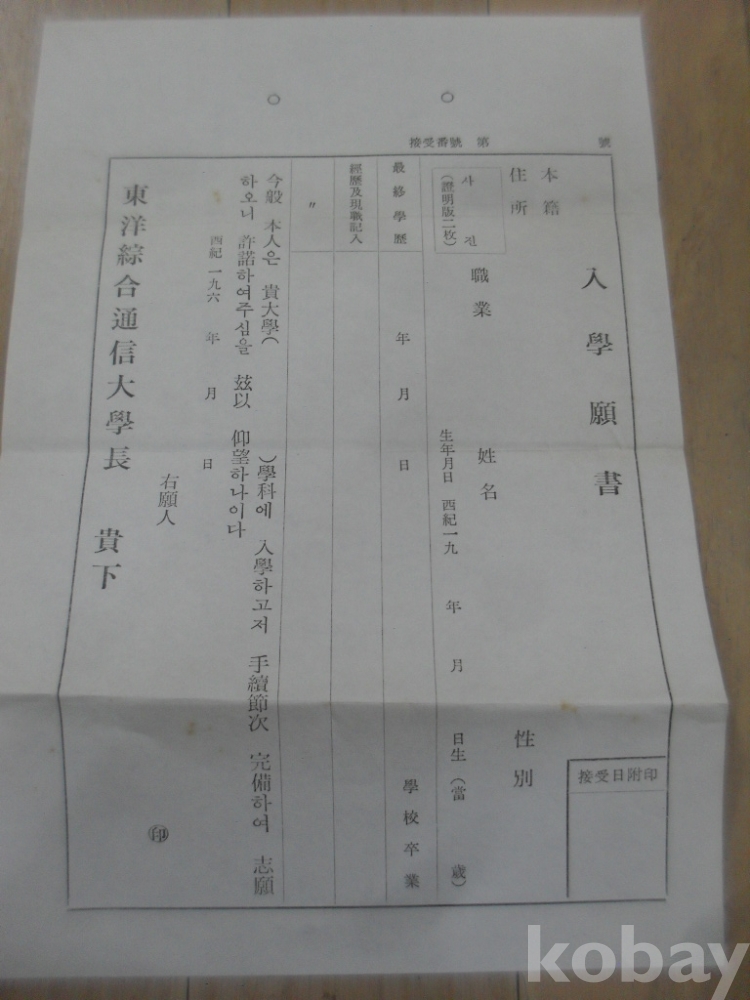 接受番號 第 號
入學願書
接受日附印
本籍
住所
사진
(證明版二枚)
職業 姓名 性別
生年月日 西紀一九 年 月 日生(當 歲)
最終學歷 年 月 日 學校卒業
經歷及現職記入
〃
今般 本人은 貴大學( )學科에 入學하고저 手續節次 完備하여 志願
하오니 許諾하여주심을 玆以 仰望하나이다
西紀一九六 年 月 日
右願人 ㊞
東洋綜合通信大學長 貴下
kobay